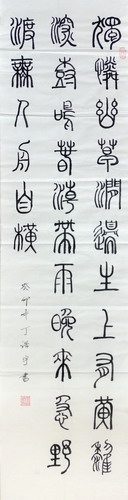 獨憐幽草澗邊生上有黃鸝
深樹鳴春潮帶雨晚來急野
渡無人舟自橫
癸卯年丁書